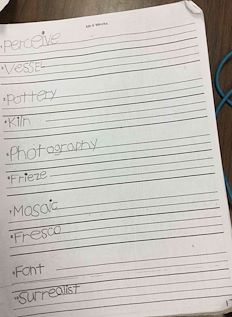 perceive
Vessel
Pottery
Kiln
Photography
Frieze
Mosaic
Fresco
Font
Surrealist